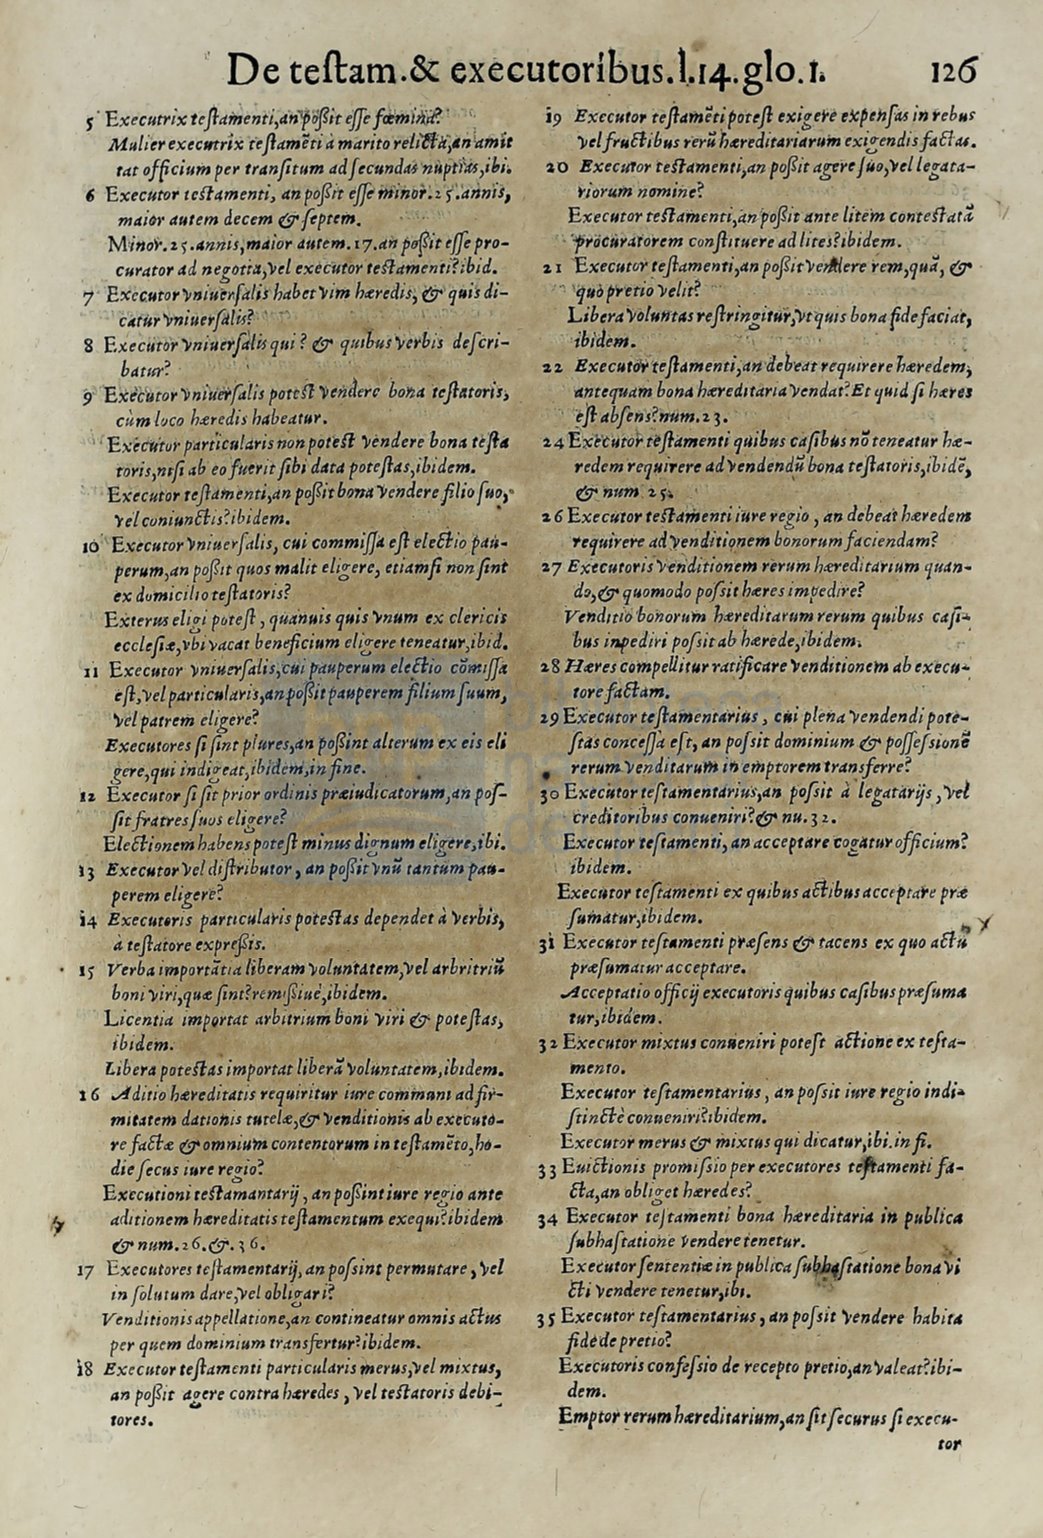 De testam.& executoribus.l.14.glo.1. 126
5 Executrix testamenti,an possit esse fœmina?
Mulier executrix testamēti à marito relicta,an amit
tat officium per transitum ad secundas nuptias,ibi.
6 Executor testamenti, an possit esse minor.25.annis,
maior autem decem & septem.
Minor.25.annis,maior autem.17.an possit esse pro-
curator ad negotia,vel executor testamenti?ibid.
7 Executor vniuersalis habet vim hæredis, & quis di-
catur vniuersalis?
8 Executor vniuersalis qui ? & quibus verbis descri-
batur?
9 Executor vniuersalis potest vendere bona testatoris,
cùm loco hæredis habeatur.
Executor particularis non potest vendere bona testa
toris,nisi ab eo fuerit sibi data potestas,ibidem.
Executor testamenti,an possit bona vendere filio suo,
vel coniunctis?ibidem.
10 Executor vniuersalis, cui commissa est electio pau-
perum,an possit quos malit eligere, etiamsi non sint
ex domicilio testatoris?
Exterus eligi potest , quanuis quis vnum ex clericis
ecclesiæ,vbi vacat beneficium eligere teneatur,ibid.
11 Executor vniuersalis,cui pauperum electio cōmissa
est,vel particularis,an possit pauperem filium suum,
vel patrem eligere?
Executores si sint plures,an possint alterum ex eis eli
gere,qui indigeat,ibidem,in fine.
12 Executor si sit prior ordinis præiudicatorum,an pos-
sit fratres suos eligere?
Electionem habens potest minus dignum eligere,ibi.
13 Executor vel distributor, an possit vnū tantùm pau-
perem eligere?
14 Executoris particularis potestas dependet à verbis,
à testatore expressis.
15 Verba importātia liberam voluntatem,vel arbitriū
boni viri,quæ sint?remissiuè,ibidem.
Licentia importat arbitrium boni viri & potestas,
ibidem.
Libera potestas importat liberā voluntatem,ibidem.
16 Aditio hæreditatis requiritur iure communi ad fir-
mitatem dationis tutelæ,& venditionis ab executo-
re factæ & omnium contentorum in testamēto,ho-
die secus iure regio?
Executioni testamantarij , an possint iure regio ante
aditionem hæreditatis testamentum exequi?ibidem
& num.26.&.36.
17 Executores testamentarij, an possint permutare , vel
in solutum dare,vel obligari?
Venditionis appellatione,an contineatur omnis actus
per quem dominium transfertur?ibidem.
18 Executor testamenti particularis merus,vel mixtus,
an possit agere contra hæredes , vel testatoris debi-
tores.
19 Executor testamēti potest exigere expensas in rebus
vel fructibus rerū hæreditariarum exigendis factas.
20 Executor testamenti,an possit agere suo,vel legata-
riorum nomine?
Executor testamenti,an possit ante litem contestatā
procuratorem constituere ad lites?ibidem.
21 Executor testamenti,an possit vendere rem,quā, &
quò pretio velit?
Libera voluntas restringitur,vt quis bona fide faciat,
ibidem.
22 Executor testamenti,an debeat requirere hæredem,
antequam bona hæreditaria vendat?Et quid si hæres
est absens?num.23.
24 Executor testamenti quibus casibus nō teneatur hæ-
redem requirere ad vendendū bona testatoris,ibidē,
& num 25.
26 Executor testamenti iure regio , an debeat hæredem
requirere ad venditionem bonorum faciendam?
27 Executoris venditionem rerum hæreditarium quan-
do,& quomodo possit hæres impedire?
Venditio bonorum hæreditarum rerum quibus casi-
bus inpediri possit ab hærede,ibidem.
28 Hæres compellitur ratificare venditionem ab execu-
tore factam.
29 Executor testamentarius , cui plena vendendi pote-
stas concessa est, an possit dominium & possessionē
rerum venditarum in emptorem transferre?
30 Executor testamentarius,an possit à legatarijs , vel
creditoribus conueniri?& nu.32.
Executor testamenti, an acceptare cogatur officium?
ibidem.
Executor testamenti ex quibus actibus acceptare præ
sumatur,ibidem.
31 Executor testamenti præsens & tacens ex quo actu
præsumatur acceptare.
Acceptatio officij executoris quibus casibus præsuma
tur,ibidem.
32 Executor mixtus conueniri potest actione ex testa-
mento.
Executor testamentarius , an possit iure regio indi-
stinctè conueniri?ibidem.
Executor merus & mixtus qui dicatur,ibi.in fi.
33 Euictionis promissio per executores testamenti fa-
cta,an obliget hæredes?
34 Executor testamenti bona hæreditaria in publica
subhastatione vendere tenetur.
Executor sententiæ in publica subhastatione bona vi
cti vendere tenetur,ibi.
35 Executor testamentarius , an possit vendere habita
fide de pretio?
Executoris confessio de recepto pretio,an valeat?ibi-
dem.
Emptor rerum hæreditarium,an sit securus si execu-
tor